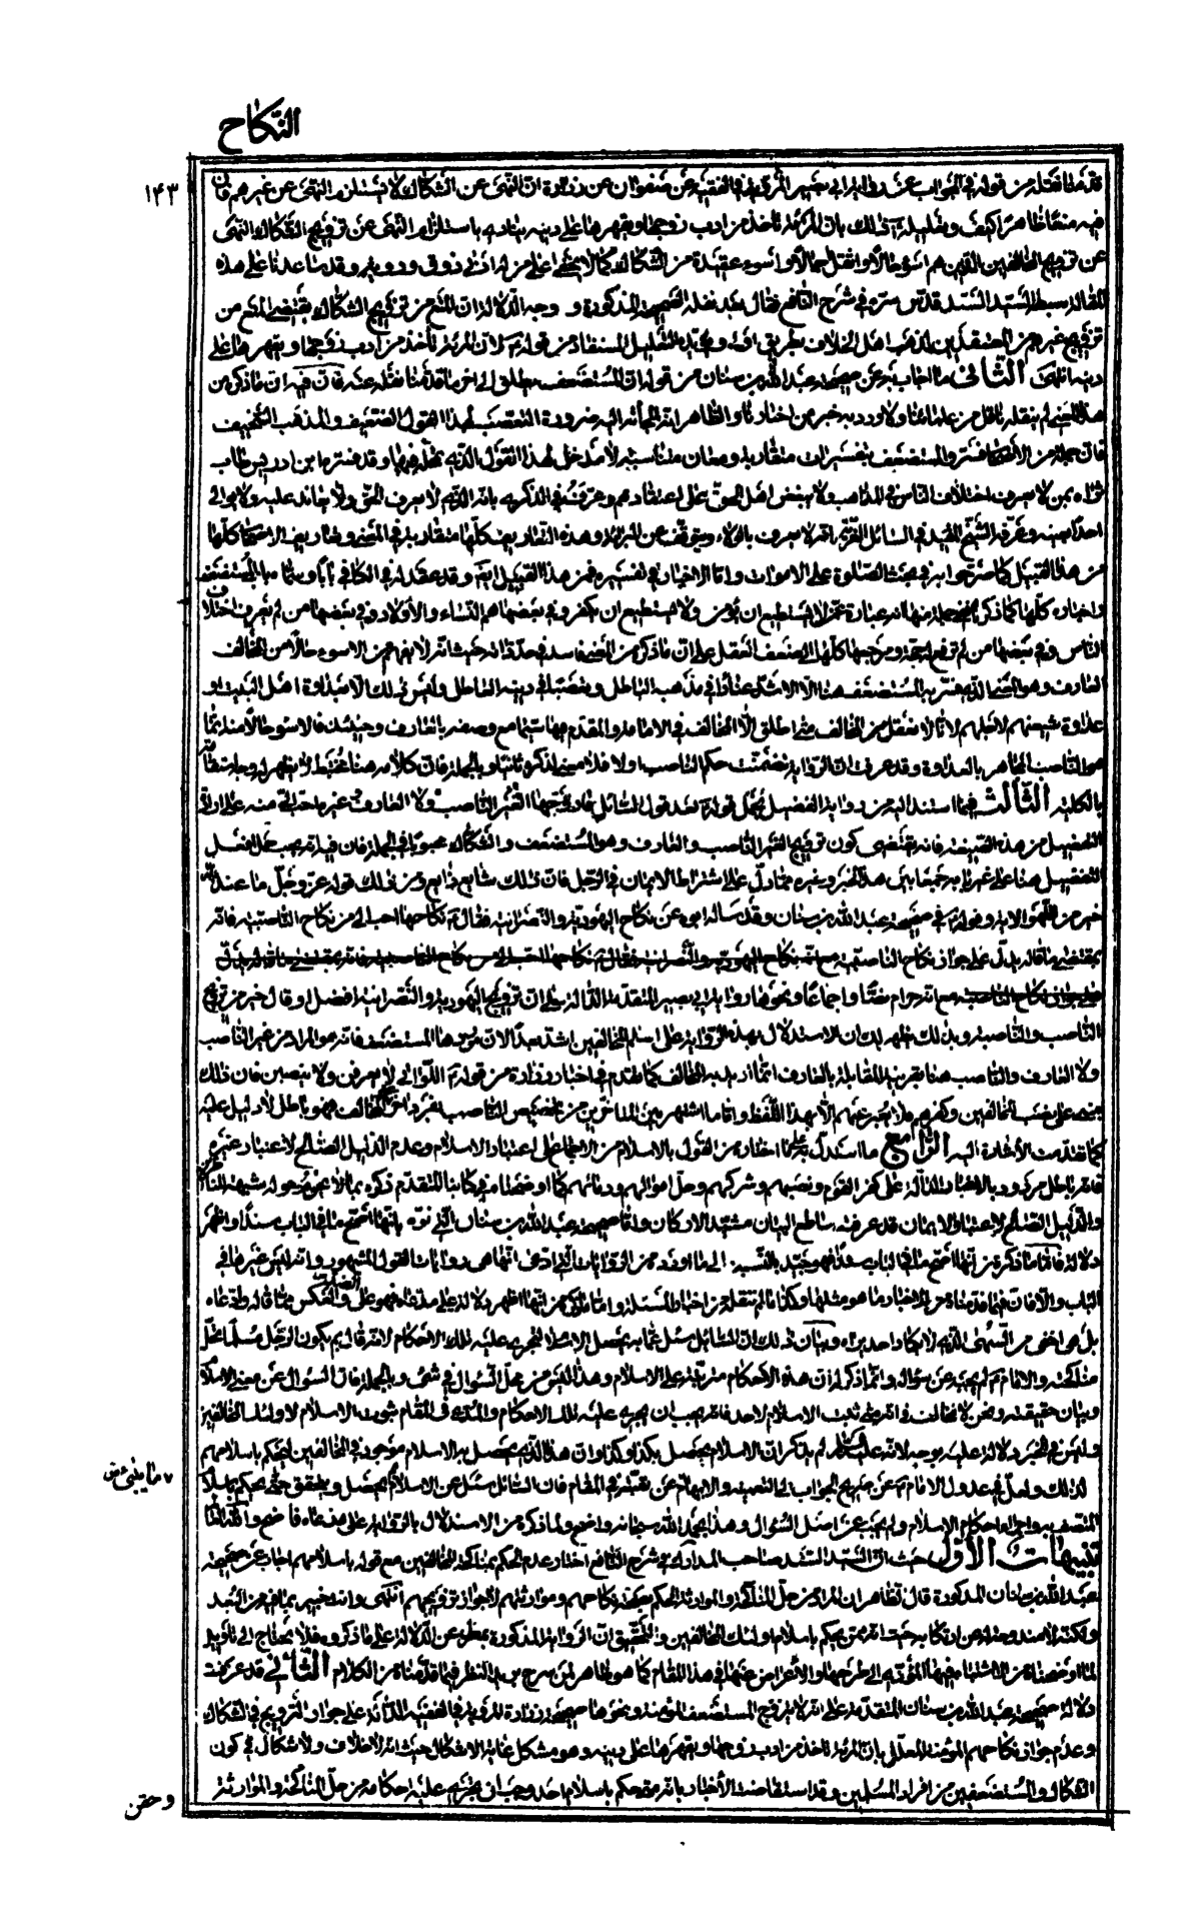 النكاح
١٤٣
قدمنا نقله من قوله في الجواب عن رواية أبي بصير المروية في الفقيه عن صفوان عن زرارة ان النهى عن الشكاك لا يستلزم النهى عن غيرهم فان
فيه منعا ظاهرا كيف وتعليله ذلك بان المرأة تأخذ من ادب زوجها ويقهرها على دينه ينادى باستلزام النهى عن تزويج الشكاك النهى
عن تزويج المخالفين الذين هم اسوء حالا واثقل حملا واسوء عقيدة من الشكاك كما لا يخفى على من له ادنى ذوق وروية وقد ساعدنا على هذه
المقالة سبطه السيد السند قدس سره في شرح النافع فقال بعد نقله الصحيحة المذكورة ووجه الدلالة ان المنع من تزويج الشكاك يقتضى المنع من
تزويج غيرهم من المعتقدين لمذهب اهل الخلاف بطريق اولى ويؤيده التعليل المستفاد من قوله لان المرأة تأخذ من ادب زوجها ويقهرها على
دينه انتهى الثاني ما اجاب به عن صحيحة عبد الله بن سنان من قوله ان المستضعف يطلق الى اخر ما قدمنا نقله عنه فان فيه ان ما ذكره من
هذا المعنى لم ينقله ناقل من علمائنا ولا ورد به خبر من اخبارنا والظاهر انه الجأته اليه ضرورة التعصب لهذا القول الضعيف والمذهب السخيف
فان جملة من الاصحاب فسروا المستضعف بتفسيرات متقاربة ومعان متناسبة لا مدخل لهذا القول الذي نقله فيها وقد فسره ابن ادريس طاب
ثراه بمن لا يعرف اختلاف الناس في المذاهب ولا يبغض اهل الحق على اعتقادهم وعرفه في الذكرى بانه الذي لا يعرف الحق ولا يعاند عليه ولا يوالى
احدا بعينه وعرفه الشيخ المفيد في المسائل الغرية انه لا يعرف بالولاء ويتوقف عن البراءة وهذه التعاريف كلها متقاربة في المعنى وتعاريف الاصحاب كلها
من هذا القبيل كما صرحوا به في بحث الصلوة على الاموات واما الاخبار في تفسيره فمن هذا القبيل ايضا وقد عقد له في الكافي بابا وسماه باب المستضعف
واخباره كلها كما ذكرنا ففي جملة منها انه عبارة عمن لا يستطيع ان يؤمن ولا يستطيع ان يكفر وفي بعضها هم النساء والاولاد وفي بعضها من لم يعرف اختلاف
الناس وفي بعضها من لم ترفع اليه حجة ومرجعها كلها الى ضعف العقل على ان ما ذكره من المعنى فاسد في حد ذاته حيث انه لا يفهم من الاسوء حالا من المخالف
العارف وهو المعنى الذي فسر به المستضعف هنا الا الاشد عنادا في مذهب الباطل وتصلبا في دينه العاطل وليس ذلك الا بعداوة اهل البيت او
عداوة شيعتهم لاجلهم لانا لا نعقل من المخالف متى اطلق الا المخالف في الامامة والمقدم فيها سيما مع وصفه بالعارف وحينئذ فالاسوء حالا منه انما
هو الناصب المجاهر بالعداوة وقد عرفت ان الرواية تضمنت حكم الناصب اولا فلا معنى لذكره ثانيا وبالجملة فان كلامه هنا مختبط لا يظهر له وجه استقامة
بالكلية الثالث فيما استند اليه من رواية الفضيل بحمل قوله بعد قول السائل فازوجها الغير الناصب ولا العارف غيره احب الى منه على ارادة
التفضيل من هذه الصيغة فانه يقتضى كون تزويج الغير الناصب والعارف وهو المستضعف والشكاك محبوبا في الجملة فان فيه انه يجب حمل افعل
التفضيل هنا على غير بابه جمعا بين هذا الخبر وغيره مما دل على اشتراط الايمان في الرجل فان ذلك شايع ذايع ومن ذلك قوله عز وجل ما عند الله
خير من اللهو الاية وقوله في صحيحة عبد الله بن سنان وقد سأله ابي عن نكاح اليهودية والنصرانية فقال نكاحهما احب الى من نكاح الناصبية فانه
بمقتضى ما قاله يدل على جواز نكاح الناصبية
مع انه حرام نصا واجماعا ونحوها رواية ابي بصير المتقدمة الدالة على ان تزويج اليهودية والنصرانية افضل او قال خير من تزويج
الناصب والناصبة وبذلك ظهر لك ان الاستدلال بهذه الرواية على اسلام المخالفين اشد بعدا لان موردها المستضعف فانه هو المراد من غير الناصب
ولا العارف والناصب هنا بقرينة المقابلة بالعارف انما اريد به المخالف كما تقدم في اخبار زرارة من قوله اللواتي لا يعرفن ولا ينصبن فان ذلك
مبنى على نصب المخالفين وكفرهم فلا يعبر عنهم الا بهذا اللفظ واما ما اشتهر بين المتاخرين من تخصيص الناصب بفرد اخر غير المخالف فهو باطل لا دليل عليه
كما تقدمت الاشارة اليه الرابع ما استدل به على ما اختاره من القول بالاسلام من الاجماع على اعتبار الاسلام وعدم الدليل الصالح لاعتبار غيره
فانه باطل مردود بالاخبار الدالة على كفر القوم ونصبهم وشركهم وحل اموالهم ودمائهم كما اوضحناه في كتابنا المتقدم ذكره بما لا يحوم حوله شبهة للناظرين
والدليل الصالح لاعتبار الايمان قد عرفته ساطع البيان مشيد الاركان واما صحيحة عبد الله بن سنان التي نوه بانها اصح ما في الباب سندا واظهر
دلالة فاما ما ذكره من انها اصح ما في الباب سندا فهو جيد بالنسبة الى ما اورده من الروايات التي ادعى انها هي روايات القول المشهور وانه ليس غيرها في
الباب والا فان فيما قدمناه من الاخبار ما هو مثلها وكذا ما لم ننقله من اخبار المسئلة واما ما ذكره من انها اظهر دلالة على مدعاه فهو على الضد والعكس مما قاله وادعاه
بل هي اخفى من السهى الذي لا يكاد احد يراه وبيان ذلك ان السائل سئل عما به يحصل الاسلام لتجرى عليه تلك الاحكام لانه قال بم يكون الرجل مسلما تحل
مناكحته والامام لم يجبه عن سؤاله وانما ذكر له ان هذه الاحكام مترتبة على الاسلام وهذا ليس من محل السؤال في شئ وبالجملة فان السؤال عن معنى الاسلام
وبيان حقيقته ونحن لا نخالف في انه متى ثبت الاسلام لاحد فانه يجب ان يجرى عليه تلك الاحكام والمدعى في المقام ثبوت الاسلام لاولئك المخالفين
وليس في الخبر دلالة عليه بوجه لانه عليه السلام لم يذكر ان الاسلام يحصل بكذا وكذا وان هذا الذي يحصل به الاسلام موجود في المخالفين ليحكم باسلامهم
لذلك ولعل في عدول الامام عن صريح الجواب الى التعمية والابهام عن تقية في المقام فان السائل سئل عن الاسلام بم يحصل ويتحقق حتى يحكم باسلام
المتصف به واجراء احكام الاسلام ولم يجب عن اصل السؤال وهذا بحمد الله سبحانه واضح ولما ذكره من الاستدلال بالرواية على مدعاه فاضح والله العالم
تنبيهات الاول حيث ان السيد السند صاحب المدارك في شرح النافع اختار عدم الحكم بمناكحة المخالفين مع قوله باسلامهم اجاب عن صحيحة
عبد الله بن سنان المذكورة قال الظاهر ان المراد من حل المناكحة والموارثة الحكم بصحة نكاحهم ومواريثهم لا جواز تزويجهم انتهى وانت خبير بما فيه من البعد
ولكنه لا مندوحة عن ارتكابه حيث انه ممن يحكم باسلام اولئك المخالفين والتحقيق ان الرواية المذكورة بمعزل عن الدلالة على ما ذكروه فلا يحتاج الى تأويل
لما اوضحناه من الاشتباه فيها المؤدي الى طرحها والاعراض عنها في هذا المقام كما هو ظاهر لمن سرح بريد النظر فيما قدمناه من الكلام الثاني قد عرفت
دلالة صحيحة عبد الله بن سنان المتقدمة على انه لا يتزوج المستضعف المؤمنة ونحوها صحيحة زرارة المروية في الفقيه الدالة على جواز التزويج في الشكاك
وعدم جواز نكاحهم المؤمنة المعلل بان المرأة تأخذ من ادب زوجها ويقهرها على دينه وهو مشكل غاية الاشكال حيث انه لا خلاف ولا اشكال في كون
الشكاك والمستضعفين من افراد المسلمين وقد استفاضت الاخبار بانه متى حكم باسلام احد وجب ان يجرى عليه احكامه من حل المناكحة والموارثة
وحقن